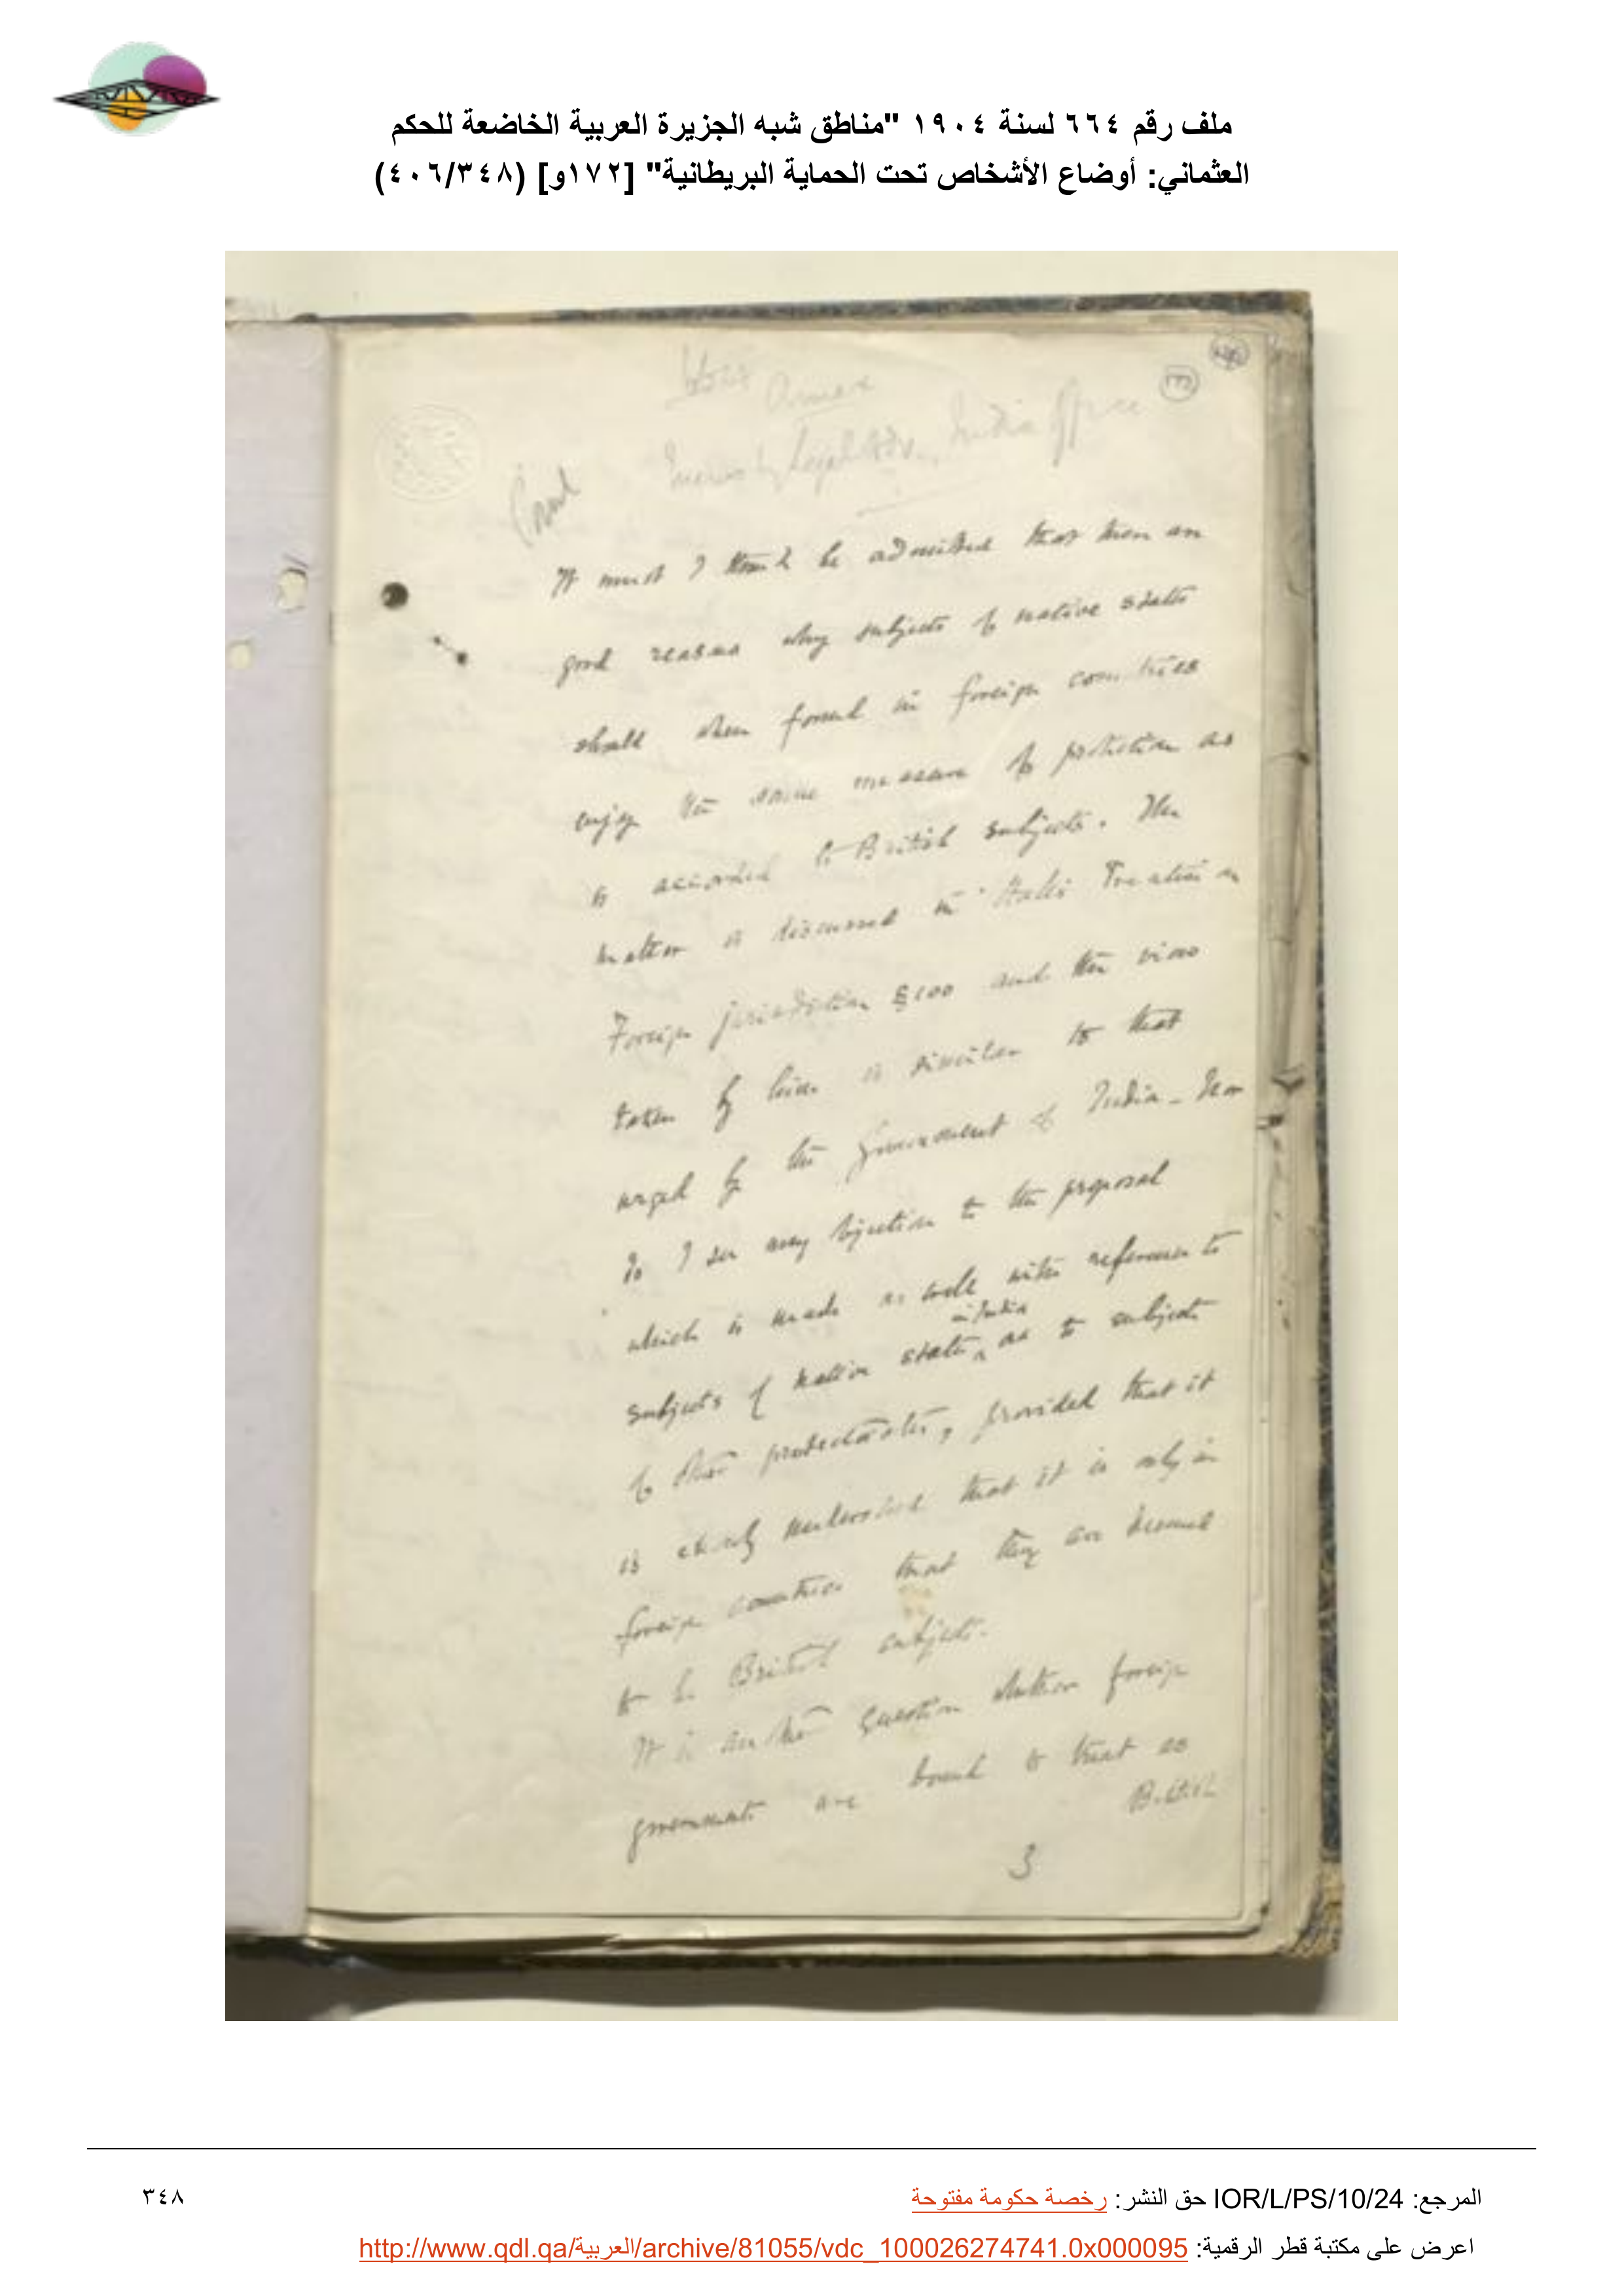 ملف رقم ٦٦٤ لسنة ١٩٠٤ "مناطق شبه الجزيرة العربية الخاضعة للحكم
العثماني: أوضاع الأشخاص تحت الحماية البريطانية" [١٧٢و] (٤٠٦/٣٤٨)
172
Annex
Legal Adv., India Office
Print
It must I think be admitted that there are
good reasons why subjects of native states
should when found in foreign countries
enjoy the same measure of protection as
is accorded to British subjects. The
matter is discussed in Hall's Treatise on
Foreign jurisdiction §100 and the view
taken by him is similar to that
urged by the Government of India - Nor
do I see any objection to the proposal
which is made as well with reference to
in India
subjects of native states, as to subjects
of other protectorates, provided that it
is clearly understood that it is only in
foreign countries that they are deemed
to be British subjects.
It is another question whether foreign
governments are bound to treat as
British
3
المرجع: IOR/L/PS/10/24 حق النشر: رخصة حكومة مفتوحة
٣٤٨
اعرض على مكتبة قطر الرقمية: http://www.qdl.qa/العربية/archive/81055/vdc_100026274741.0x000095